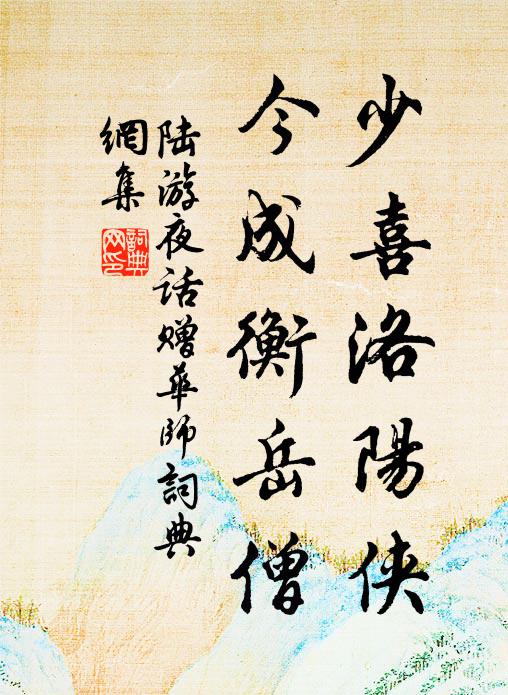 少喜洛陽俠
今成衡岳僧
陆游夜话赠華師詞典
網集
詞典
网印